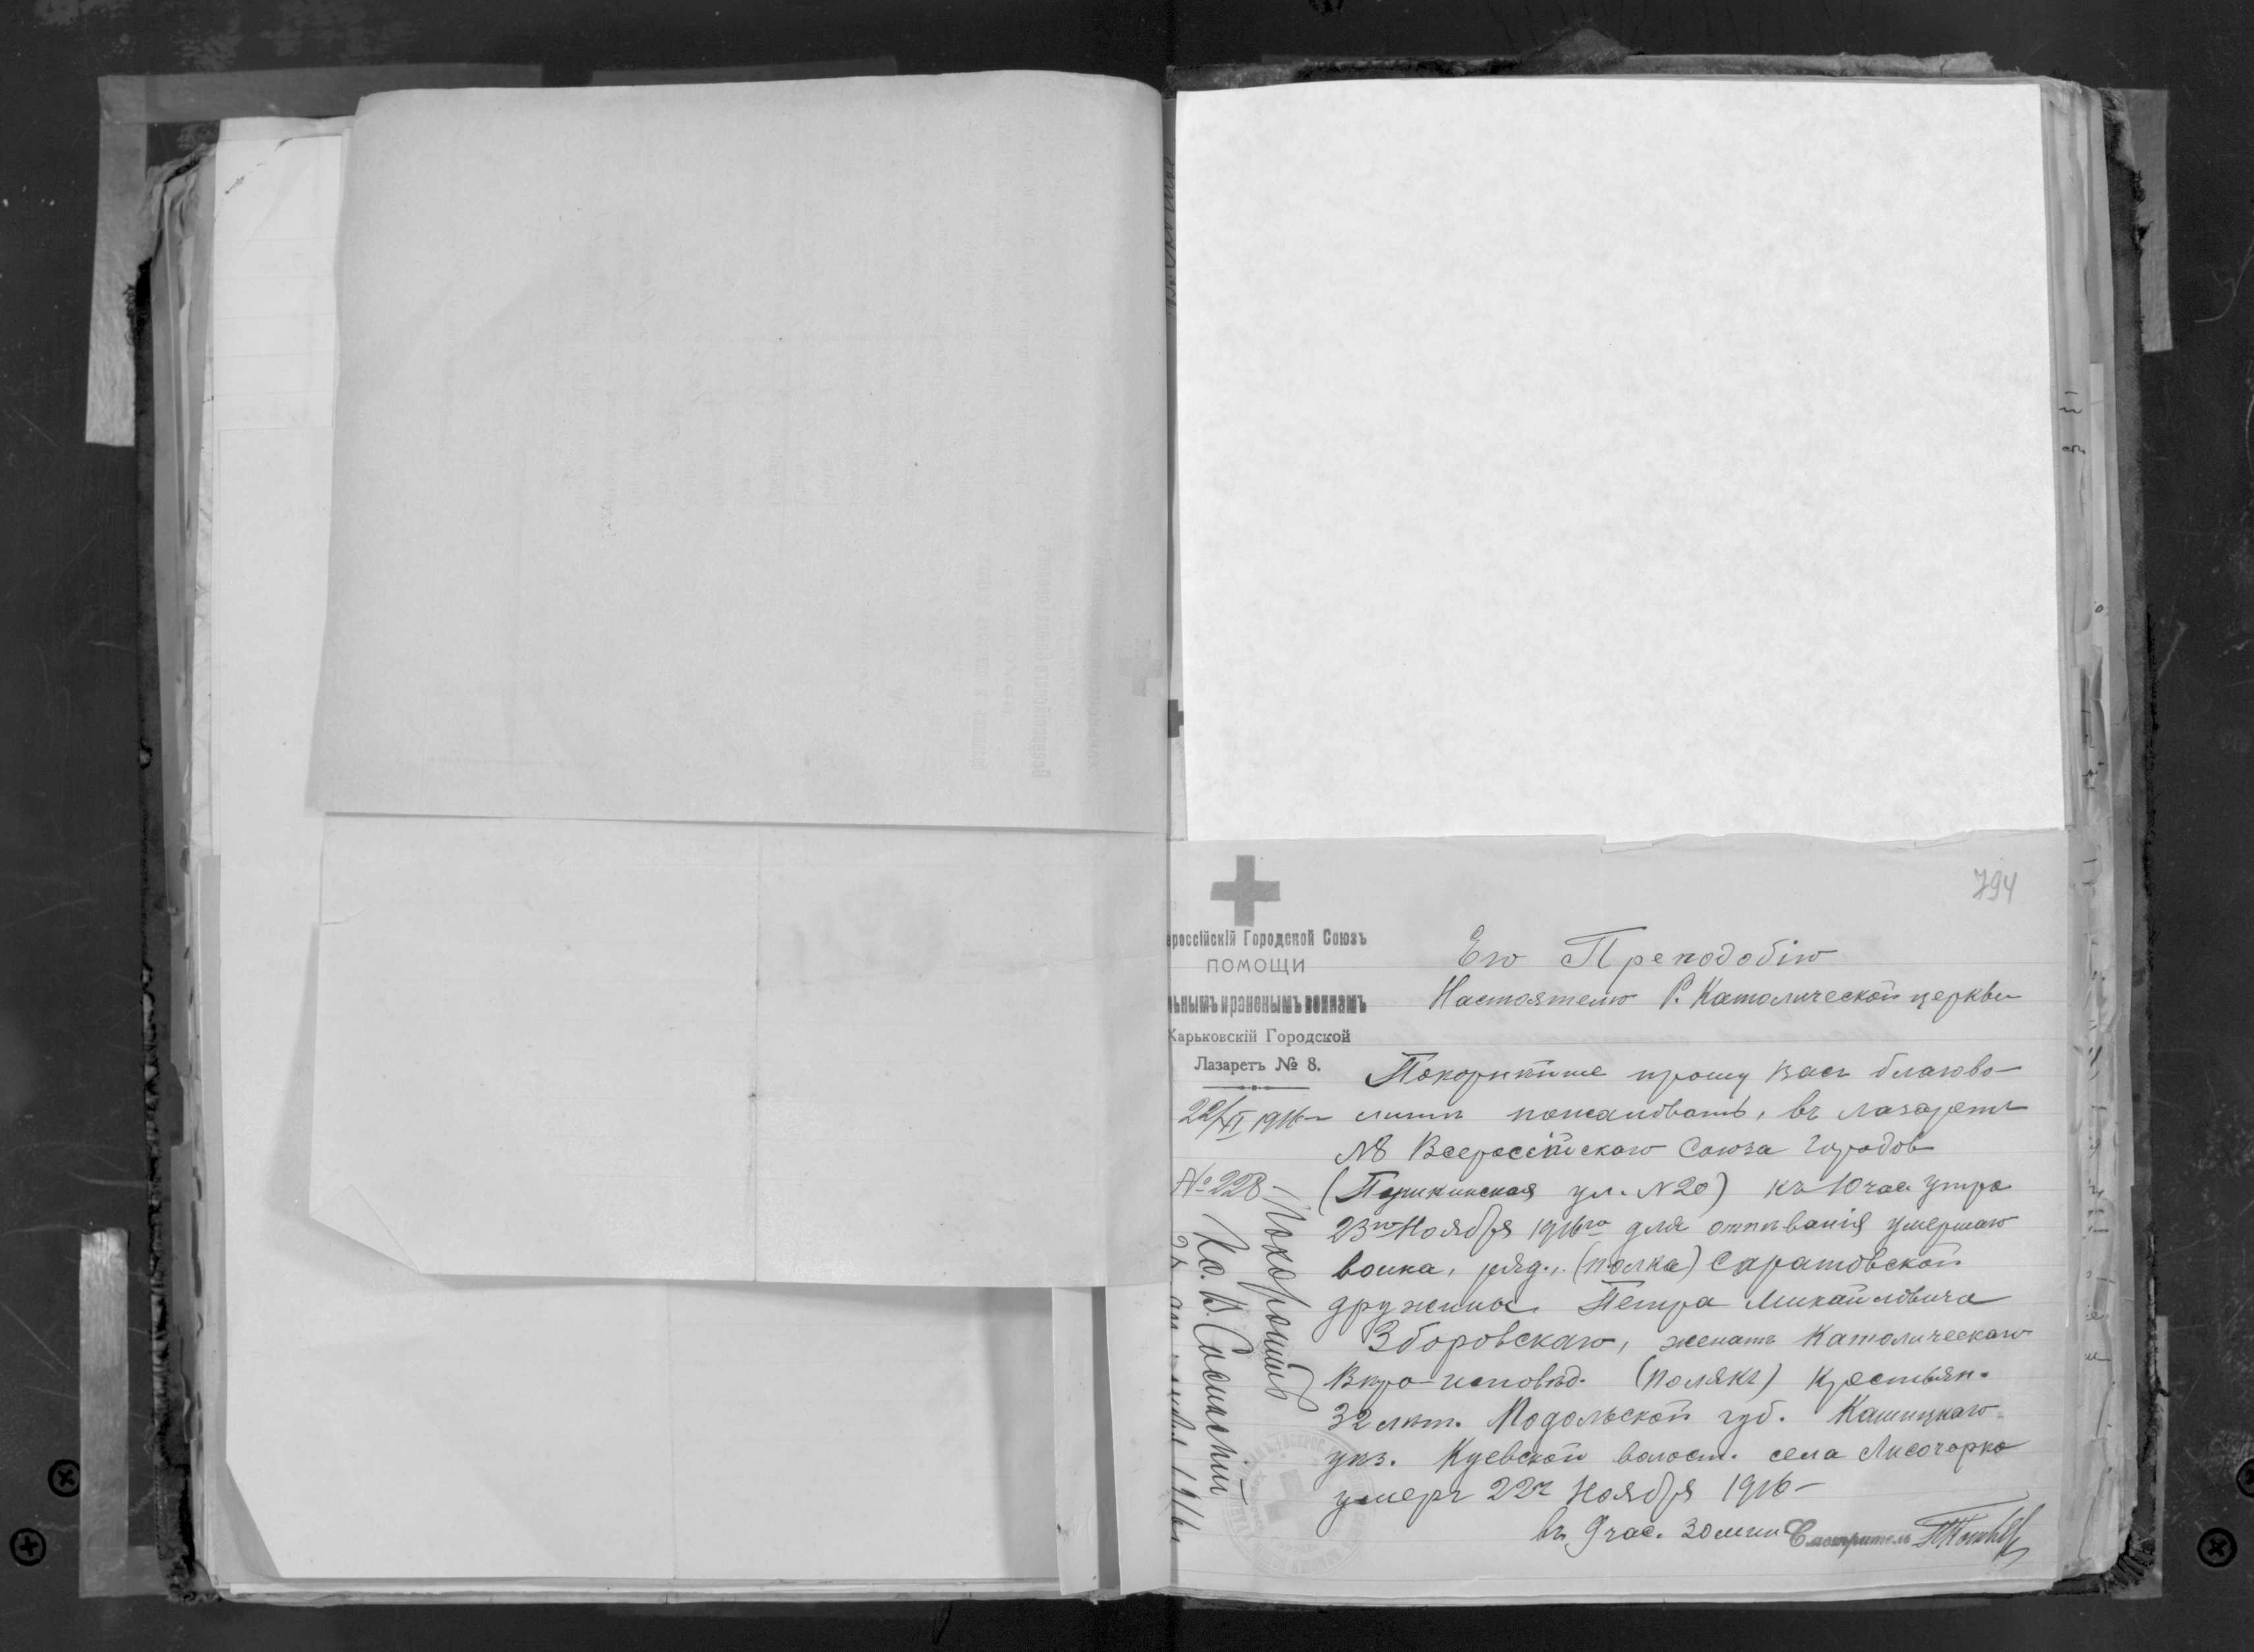 794
ероссійскій Городской Союзъ
ПОМОЩИ
льнымъ и раненымъ воинамъ
Харьковскій Городской
Лазаретъ № 8.
22/XI 1916 г
№ 228
Его Преподобію
Настоятелю Р. Католической церкви
Покорнѣйше прошу Васъ благово-
лить пожаловать, въ лазаретъ
№8 Всероссійскаго Союза городов
ул. №20) къ 10 час утра
23го Ноября 1916го для отпѣванія умершаго
воина, ряд., (полка) Саратовской
дружины Петра Михайловича
Зборовскаго, женатъ Католическаго
Вѣро-исповѣд. (полякъ) Крестьян.
32 лѣт. Подольской губ.
уѣз. волост. села
умеръ 22г Ноября 1916
въ 9 час. 30 мин Смотритель
Похоронилъ
Кс. В.
1916 г